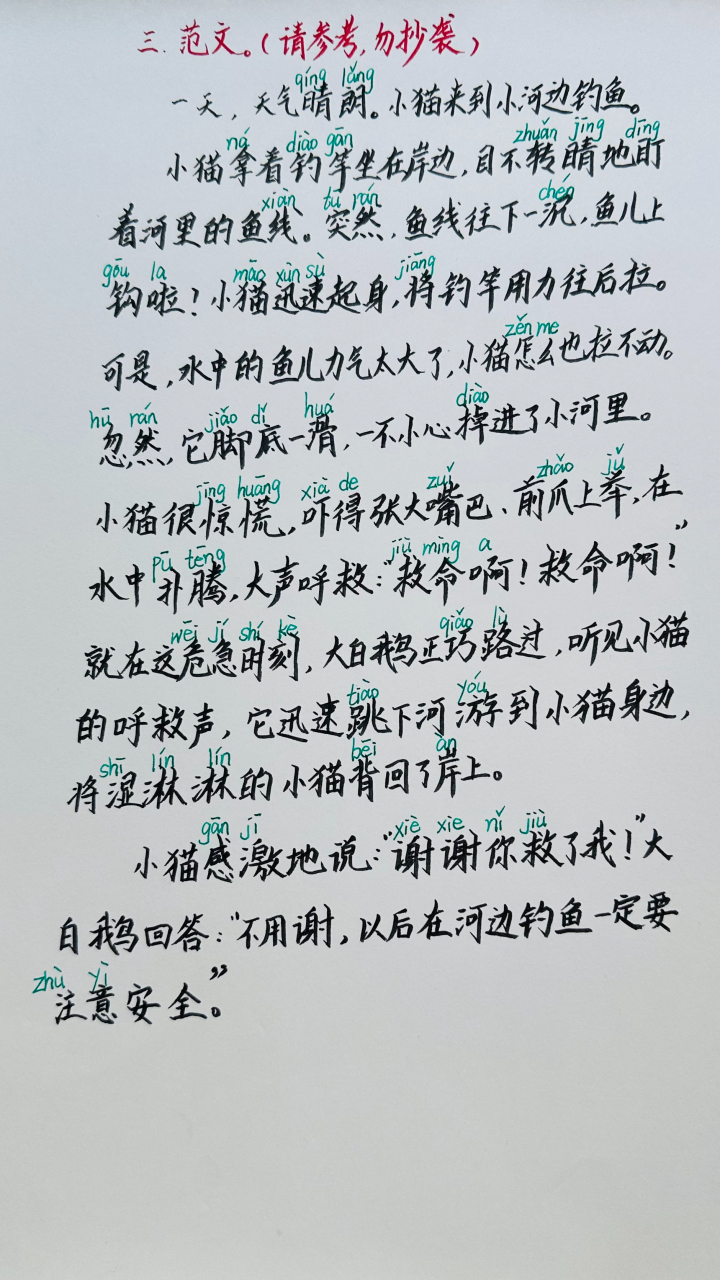 三.范文。(请参考,勿抄袭)
qíng lǎng
一天，天气晴朗。小猫来到小河边钓鱼。
ná diào gān zhuǎn jīng dīng
小猫拿着钓竿坐在岸边，目不转睛地盯
xiàn tū rán chén
着河里的鱼线。突然，鱼线往下一沉，鱼儿上
gōu la māo xùn sù jiāng
钩啦！小猫迅速起身，将钓竿用力往后拉。
zěn me
可是，水中的鱼儿力气太大了，小猫怎么也拉不动。
hū rán jiǎo dǐ huá diào
忽然，它脚底一滑，一不小心掉进了小河里。
jīng huāng xià de zuǐ zhǎo jǔ
小猫很惊慌，吓得张大嘴巴、前爪上举，在
pū téng jiù mìng a
水中扑腾，大声呼救：“救命啊！救命啊！”
wēi jí shí kè qiǎo lù
就在这危急时刻，大白鹅正巧路过，听见小猫
tiào yóu
的呼救声，它迅速跳下河游到小猫身边，
shī lín lín bēi àn
将湿淋淋的小猫背回了岸上。
gǎn jī xiè xie nǐ jiù
小猫感激地说：“谢谢你救了我！”大
白鹅回答：“不用谢，以后在河边钓鱼一定要
zhù yì
注意安全。”